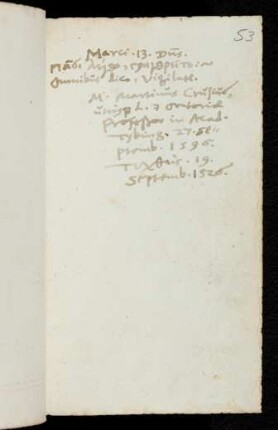 53
Marci. 13. Dns.
πᾶσι λέγω, γρηγορεῖτε:
omnibus dico, Vigilate.
M. Martinus Crusius,
utriusq L. & Oratoriae
Professor in Acad.
Tybing. 27.
ptemb. 1596.
19.
Septemb. 1526.